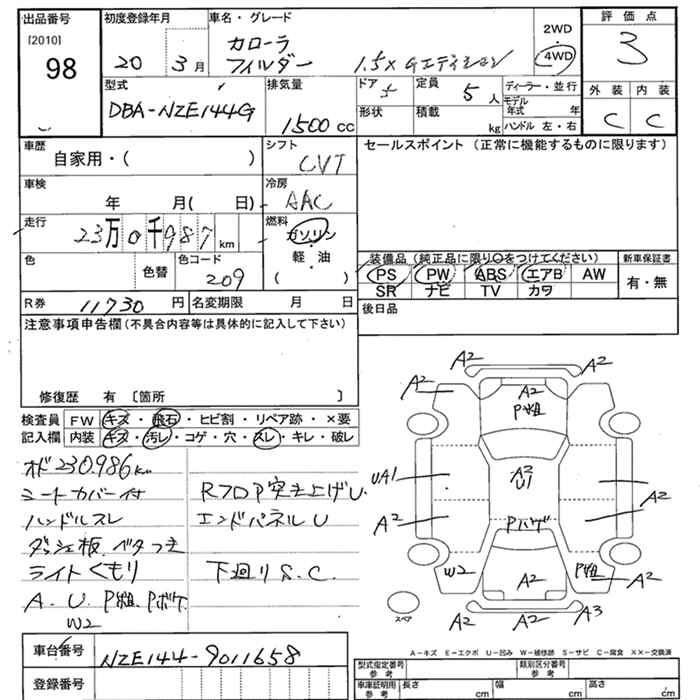 出品番号
[2010]
98
初度登録年月
20 3月
車名・グレード
カローラ
フィルダー 1.5X Gエディション
2WD
・
4WD
評価点
3
外装 内装
C C
型式
DBA-NZE144G
排気量
1500 cc
ドア
5
形状
定員
5人
積載
kg
ディーラー・並行
モデル年式 年
ハンドル 左・右
車歴
自家用・( )
シフト
CVT
セールスポイント(正常に機能するものに限ります)
車検
年 月( 日)
冷房
AAC
走行
23万0千987km
燃料
ガソリン
・
軽油
・
( )
色
色替
色コード
209
装備品(純正品に限り○をつけてください)
PS PW ABS エアB AW
SR ナビ TV カワ
新車保証書
有・無
R券 11730円
名変期限 月 日
後日品
注意事項申告欄(不具合内容等は具体的に記入して下さい)
修復歴 有 〔箇所 〕
検査員記入欄
FW キズ・飛石・ヒビ割・リペア跡・×要
内装 キズ・汚レ・コゲ・穴・スレ・キレ・破レ
オド230.986km
シートカバー付
ハンドルスレ
ダッシュ板、ベタつき
ライトくもり
A.U.P粗.Pボケ
W2
RフロP突き上げU.
エンドパネルU
下廻りS.C.
A2 A2
A2 A2
P粗
UA1 A2 U1 A2
A2 Pハゲ
W2 A2 P粗 A2
A2 A2 A3
スペア
A-キズ E-エクボ U-凹み W-補修跡 S-サビ C-腐食 XX-交換済
車台番号 NZE144-9011658
登録番号
型式指定番号
参考
類別区分番号
参考
車庫証明用
参考
長さ cm
幅 cm
高さ cm